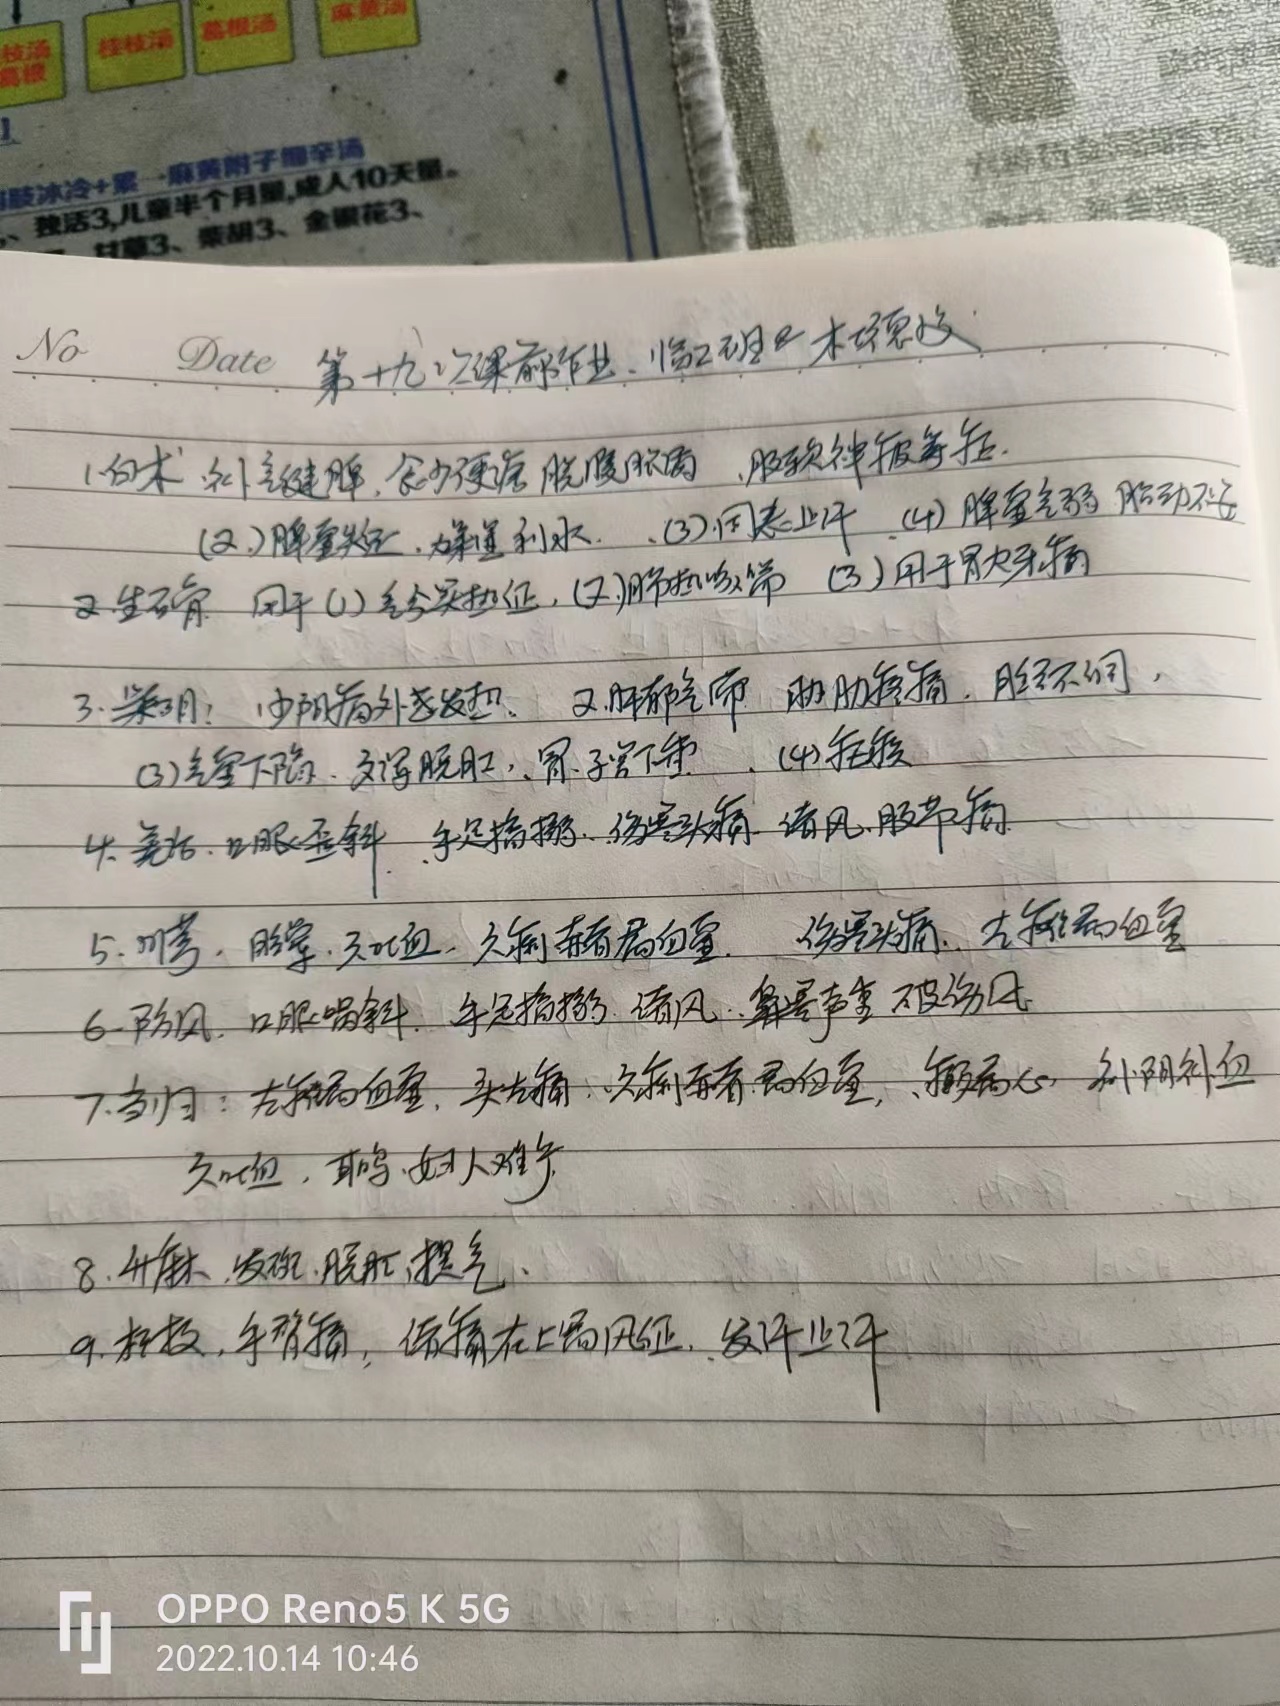 枝汤 桂枝汤 葛根汤 麻黄汤
葛根
肢冰冷+第一麻黄附子细辛汤
、独活3,儿童半个月量,成人10天量。
甘草3、柴胡3、金银花3、
No Date 第十九次课前作业、临2班
1.白术 补气健脾、食少便溏 脘腹胀满、肢软神疲等症.
(2)脾虚失运、燥湿利水、(3)固表止汗、(4)脾虚气弱 胎动不安
2.生石膏 用于(1)气分实热证,(2)肺热咳喘 (3)用于胃火牙痛
3.柴胡: 少阳病外感发热、2.肝郁气滞 胁肋疼痛、月经不调,
(3)气虚下陷、久泻脱肛、胃、子宫下垂、(4)
4.羌活、口眼歪斜、手足搐搦、伤寒头痛 诸风、肢节痛
5.川芎、 久吐血、久痢赤者属血虚 伤寒头痛、左瘫属血虚
6.防风、口眼喎斜、手足搐搦 诸风、鼻塞声重 皮伤风
7.当归:左瘫属血虚,头左痛、久痢赤者属血虚, 补阴补血
久吐血,耳鸣、妇人难产
8.升麻、发斑、脱肛、提气、
9.桂枝,手臂痛,诸痛在上属风证、发汗止汗
OPPO Reno5 K 5G
2022.10.14 10:46